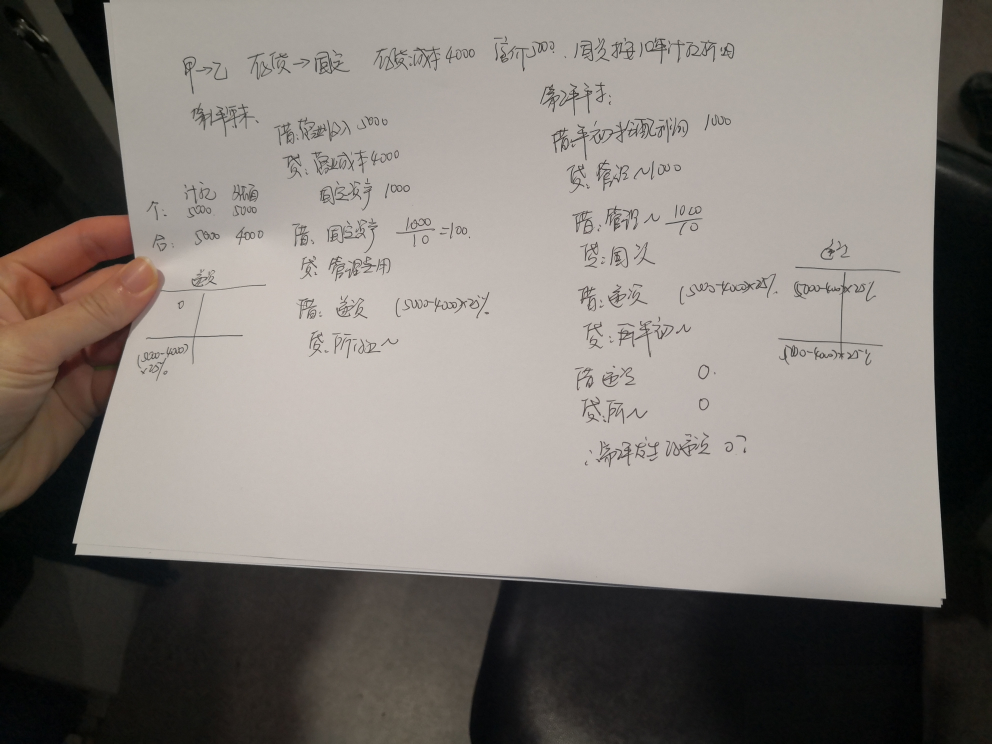 甲→乙 存货→固定 存货:成本4000 售价5000. 固资按10年计提折旧
第1年年末:
借:营业收入 5000
贷:营业成本 4000
固定资产 1000
计 税
个: 5000 5000
合: 5000 4000
借:固定资产 1000/10=100.
贷:管理费用
递资
0
(5000-4000)×25%
借:递资 (5000-4000)×25%.
贷:所 ~
第2年年末:
借:年初未分配利润 1000
贷:管 ~1000
借:管 ~ 1000/10
贷:固
借:递资 (5000-4000)×25%.
贷:年初~
借 递 0.
贷:所~ 0
(5000-4000)×25%
(5000-4000)×25%
∴第2年发生 递 0?